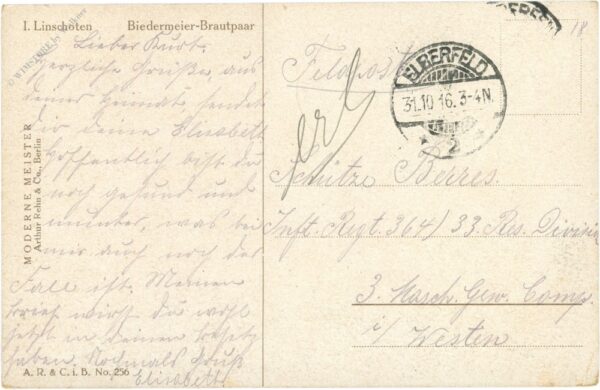 I. Linschoten Biedermeier-Brautpaar
Lieber Kurt.
Herzliche Grüße, aus
deiner Heimat, sendet
dir deine Elisabeth
Hoffentlich bist du
noch gesund und
munter, was bei
mir auch noch der
Fall ist. Meinen
Brief wirst du wohl
jetzt in deinen Besitz
haben. Nochmals Gruß
Elisabeth
MODERNE MEISTER
Arthur Rehn & Co., Berlin
A. R. & C. i. B. No. 256
Feldpost
ELBERFELD
31.10.16. 3-4N.
* 2
18
Schütze Berres.
Inft. Regt. 364/ 33. Res. Division
3. Masch. Gew. Comp.
i/ Westen